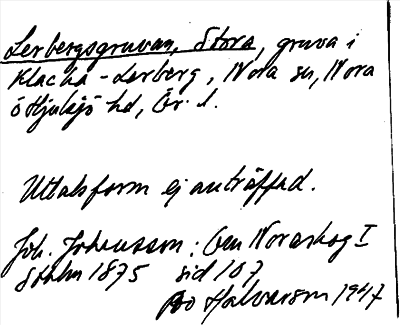 Lerbergsgruvan, Stora, gruva i
Klacka-Lerberg, Nora sn, Nora
o Hjulsjö hd, Ör. l.
Uttalsform ej anträffad.
Joh. Johansson: Om Noraskog I
Sthlm 1875 sid 107
Bo Halvarson 1947